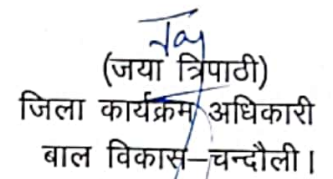 (जया त्रिपाठी)
जिला कार्यक्रम अधिकारी
बाल विकास–चन्दौली।